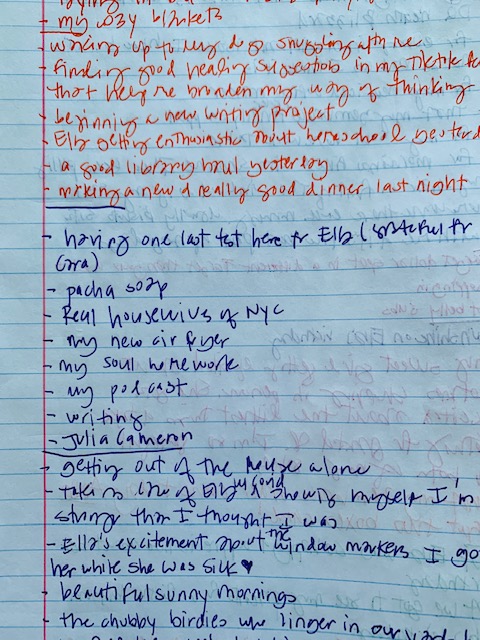 - my cozy blankets
- waking up to my dog snuggling with me
- finding good healing suggestions in my TikTok
that help me broaden my way of thinking
- beginning a new writing project
- Ella getting enthusiastic about homeschool
- a good library haul yesterday
- making a new & really good dinner last night
- having one last test here for Ella (grateful for
- pacha soap
- Real housewives of NYC
- my new air fryer
- my soul homework
- my podcast
- writing
- Julia Cameron
- getting out of the house alone
- taking care of Ella and showing myself I'm
strong than I thought I was
- Ella's excitement about the window markers I
her while she was sick ♥
- beautiful sunny mornings
- the chubby birdies who linger in our yard